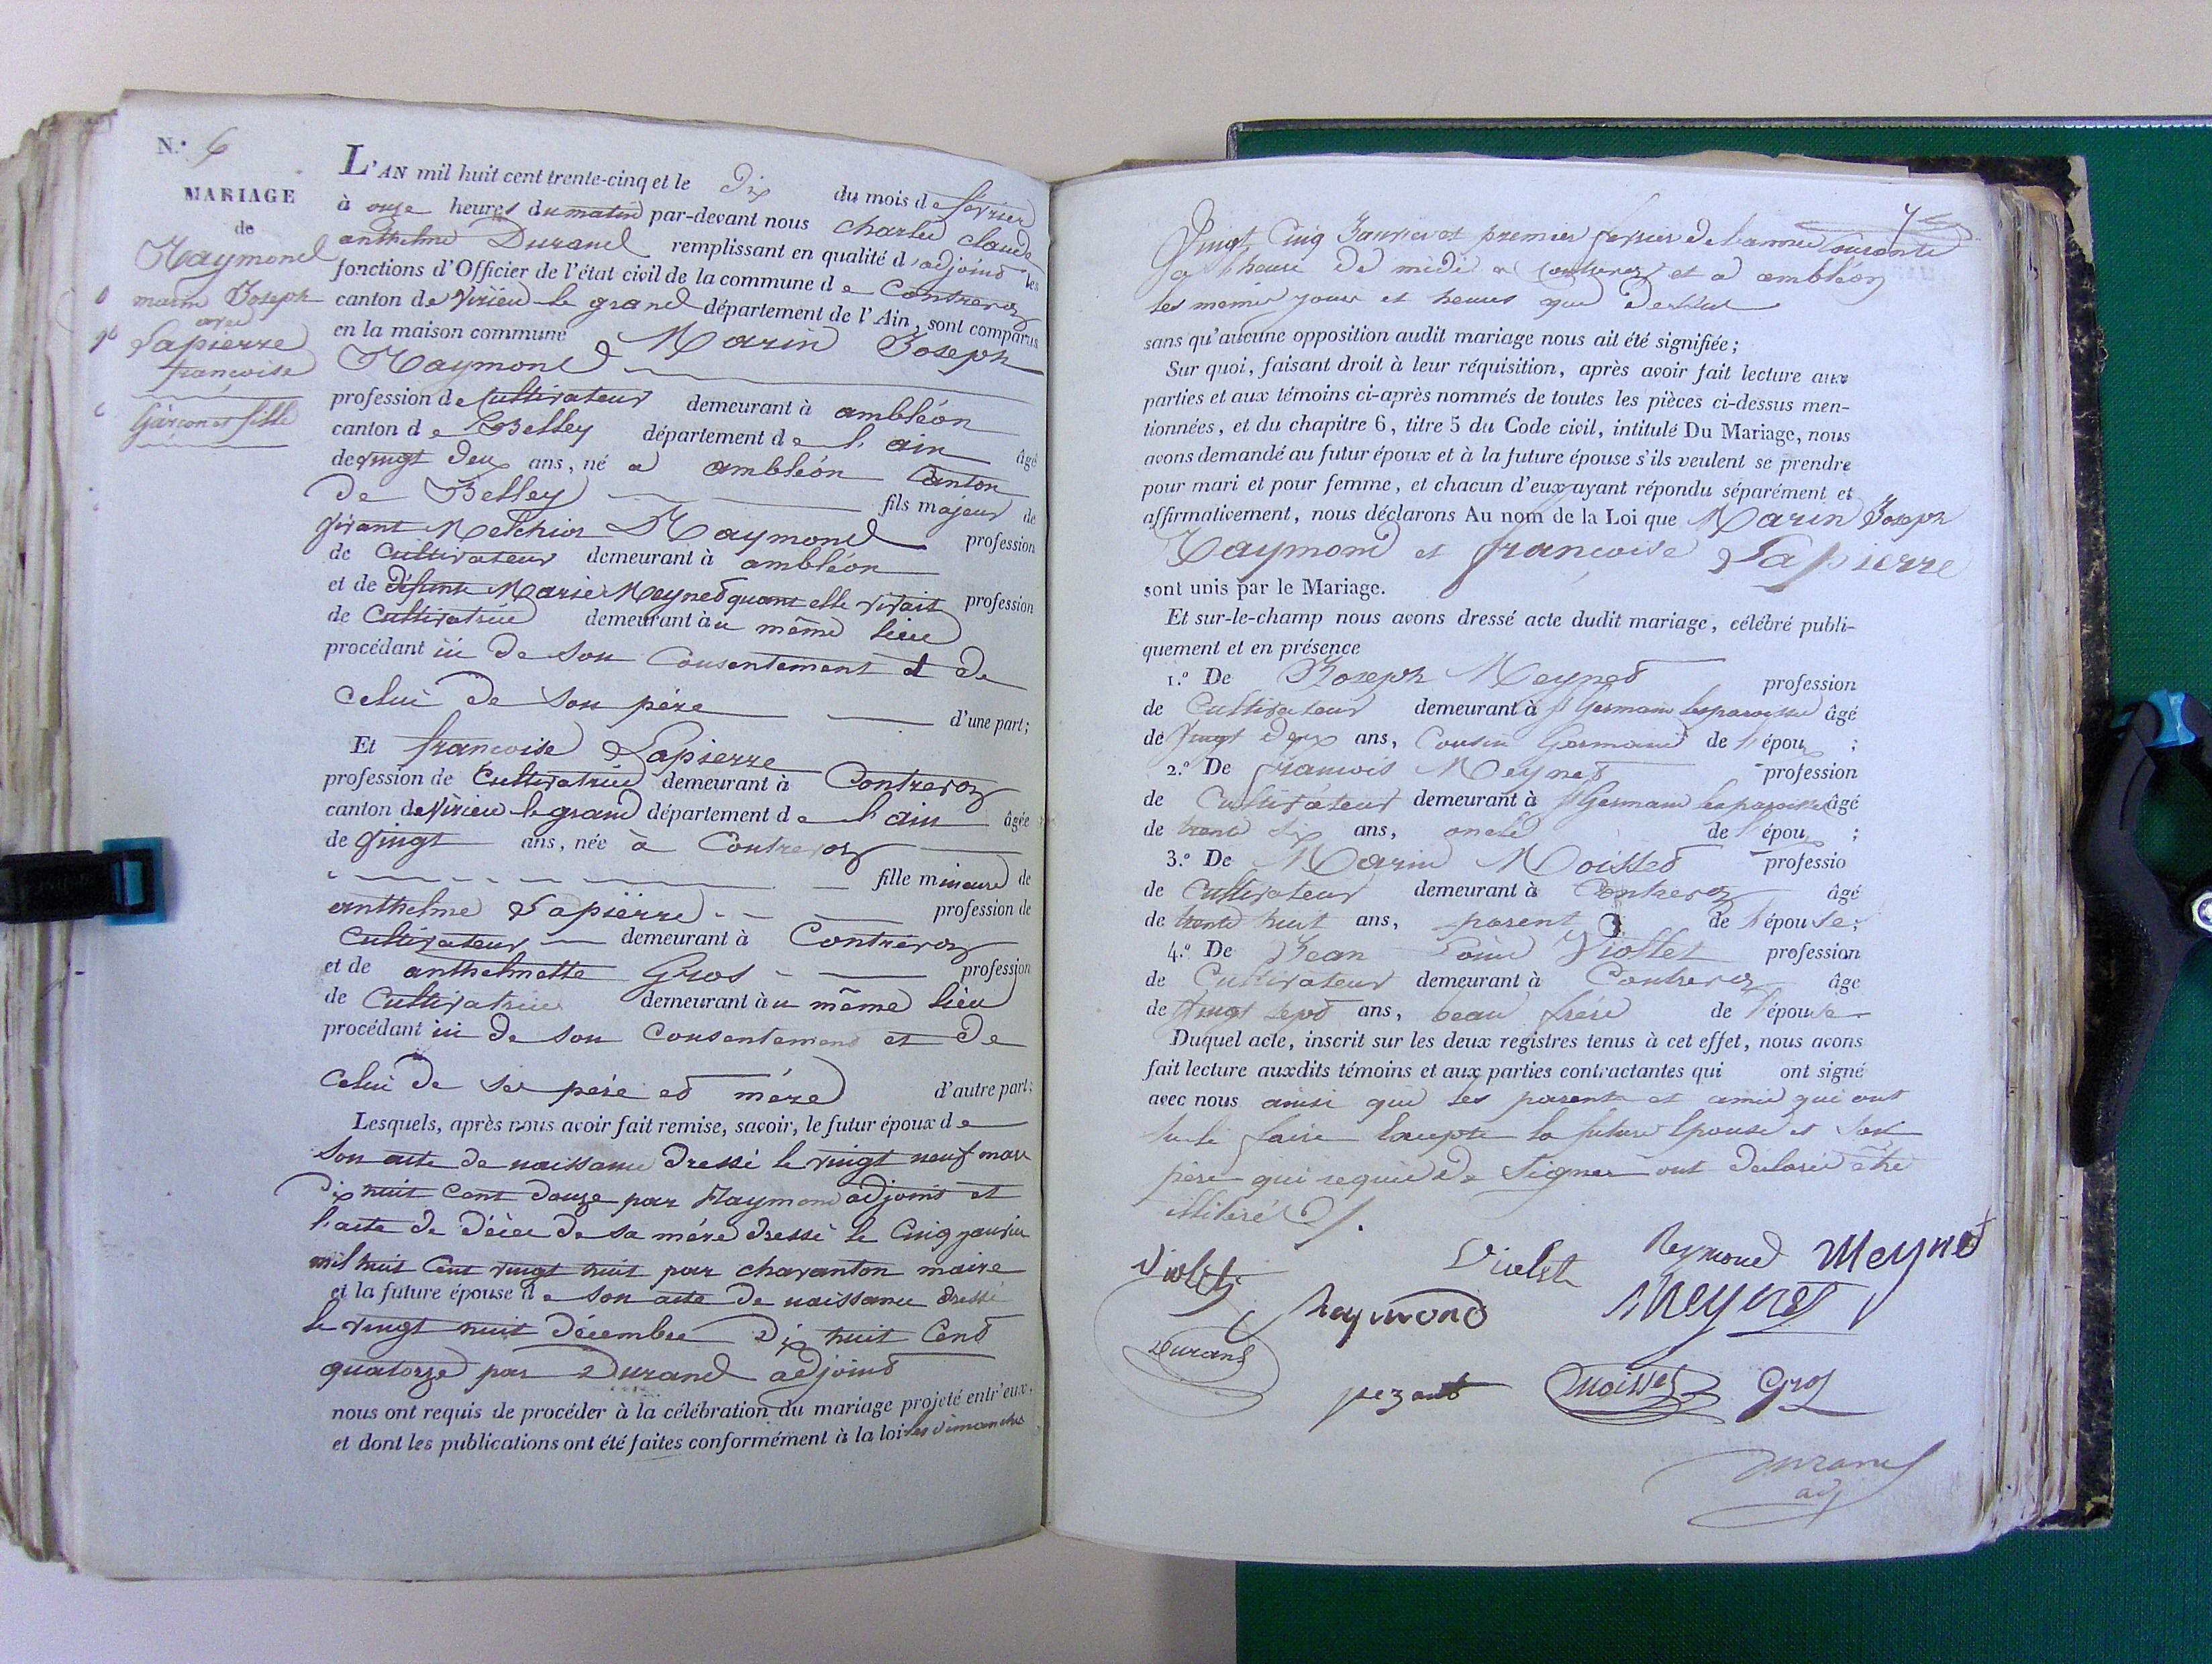 N.° 6
MARIAGE
de
Raymond
marin Joseph
avec
Lapierre
francoise
Garcon et fille
L'AN mil huit cent trente-cinq et le Dix du mois de fevrier
à onze heures du matin par-devant nous Charles Claude
anthelme Durand remplissant en qualité d'adjoint les
fonctions d'Officier de l'état civil de la commune de Contrevoz
canton de Virieu le grand département de l'Ain, sont comparus
en la maison commune Marin Joseph
Raymond
profession de Cultivateur demeurant à ambléon
canton de Belley département de l'ain âgé
de vingt deux ans, né a ambléon Canton
de Belley fils majeur de
vivant Melchior Raymond profession
de Cultivateur demeurant à ambléon
et de défunte Marie Meynet quant elle vivait profession
de Cultivatrice demeurant au même lieu
procédant ici de son Consentement et de
celui de son père d'une part;
Et francoise Lapierre
profession de Cultivatrice demeurant à Contrevoz
canton de Virieu le grand département de l'ain âgée
de vingt ans, née à Contrevoz
fille mineure de
anthelme Lapierre profession de
Cultivateur demeurant à Contrevoz
et de anthelmette Gros profession
de Cultivatrice demeurant au même lieu
procédant ici de son Consentement et de
celui de ses père et mère d'autre part;
Lesquels, après nous avoir fait remise, savoir, le futur époux de
son acte de naissance dressé le vingt neuf mars
Dix huit Cent douze par Raymond adjoint et
l'acte de décès de sa mère dressé le Cinq janvier
mil huit Cent vingt huit par chavanton maire
et la future épouse de son acte de naissance dressé
le vingt huit décembre Dix huit Cent
quatorze par Durand adjoint
nous ont requis de procéder à la célébration du mariage projeté entr'eux,
et dont les publications ont été faites conformément à la loi les dimanches
7
Vingt Cinq Janvier et premier fevrier de l'année Courante
a l'heure de midi a Contrevoz et a ambléon
les memes jours et heures que dessus
sans qu'aucune opposition audit mariage nous ait été signifiée;
Sur quoi, faisant droit à leur réquisition, après avoir fait lecture aux
parties et aux témoins ci-après nommés de toutes les pièces ci-dessus men-
tionnées, et du chapitre 6, titre 5 du Code civil, intitulé Du Mariage, nous
avons demandé au futur époux et à la future épouse s'ils veulent se prendre
pour mari et pour femme, et chacun d'eux ayant répondu séparément et
affirmativement, nous déclarons Au nom de la Loi que Marin Joseph
Raymond et francoise Lapierre
sont unis par le Mariage.
Et sur-le-champ nous avons dressé acte dudit mariage, célébré publi-
quement et en présence
1.° De Joseph Meynet profession
de Cultivateur demeurant à St Germain lesparoisses âgé
de vingt deux ans, Cousin Germain de l'époux ;
2.° De francois Meynet profession
de Cultivateur demeurant à St Germain lesparoisses âgé
de trente six ans, oncle de l'époux ;
3.° De Marin Moisset professio
de Cultivateur demeurant à Contrevoz âgé
de trente huit ans, parent de l'épouse;
4.° De Jean Louis Viollet profession
de Cultivateur demeurant à Contrevoz âge
de vingt sept ans, beau frère de l'épouse
Duquel acte, inscrit sur les deux registres tenus à cet effet, nous avons
fait lecture auxdits témoins et aux parties contractantes qui ont signé
avec nous ainsi que les parents et amis qui ont
su le faire Excepté la future Epouse et son
père qui requis de signer ont déclaré être
illitéré
Violet Reymond Meynet
Reymond Meynet
Durand
pezant Moisset Gros
Durand
adj